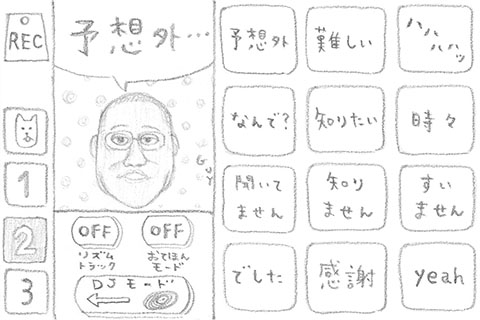 REC
1
2
3
予想外…
GUY
OFF
リズム
トラック
OFF
おてほん
モード
DJモード
予想外
難しい
ハハハハッ
なんで?
知りたい
時々
聞いて
ません
知り
ません
すい
ません
でした
感謝
yeah